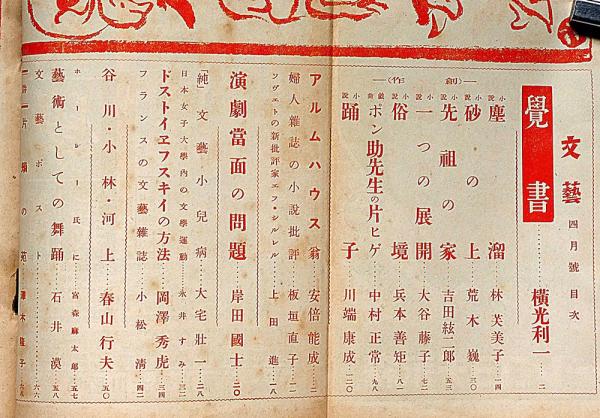 文藝 四月號目次
覺書……横光利一…二
―(創作)―
小説 塵溜……林芙美子…一四
小説 砂の上……荒木巍…三〇
小説 先祖の家……吉田絃二郎…五三
小説 一つの展開……大谷藤子…六二
小説 俗境……兵本善矩…八一
戯曲 ポン助先生の片ヒゲ……中村正常…九八
小説 踊子……川端康成…一二〇
アルムハウス翁……安倍能成…二
婦人雜誌の小説批評……板垣直子…一二
ソヴエトの新批評家エフ・シルレル……上田進…一八
演劇當面の問題……岸田國士…二〇
「純」文藝小兒病……大宅壮一…二八
日本女子大學内の文學運動……永井すみ…三二
ドストイエフスキイの方法……岡澤秀虎…三四
フランスの文藝雜誌……小松清…四二
谷川・小林・河上……春山行夫…五〇
ホーレー氏に……宮森麻太郎…五七
藝術としての舞踊……石井漠…五八
文藝ポスト……六六